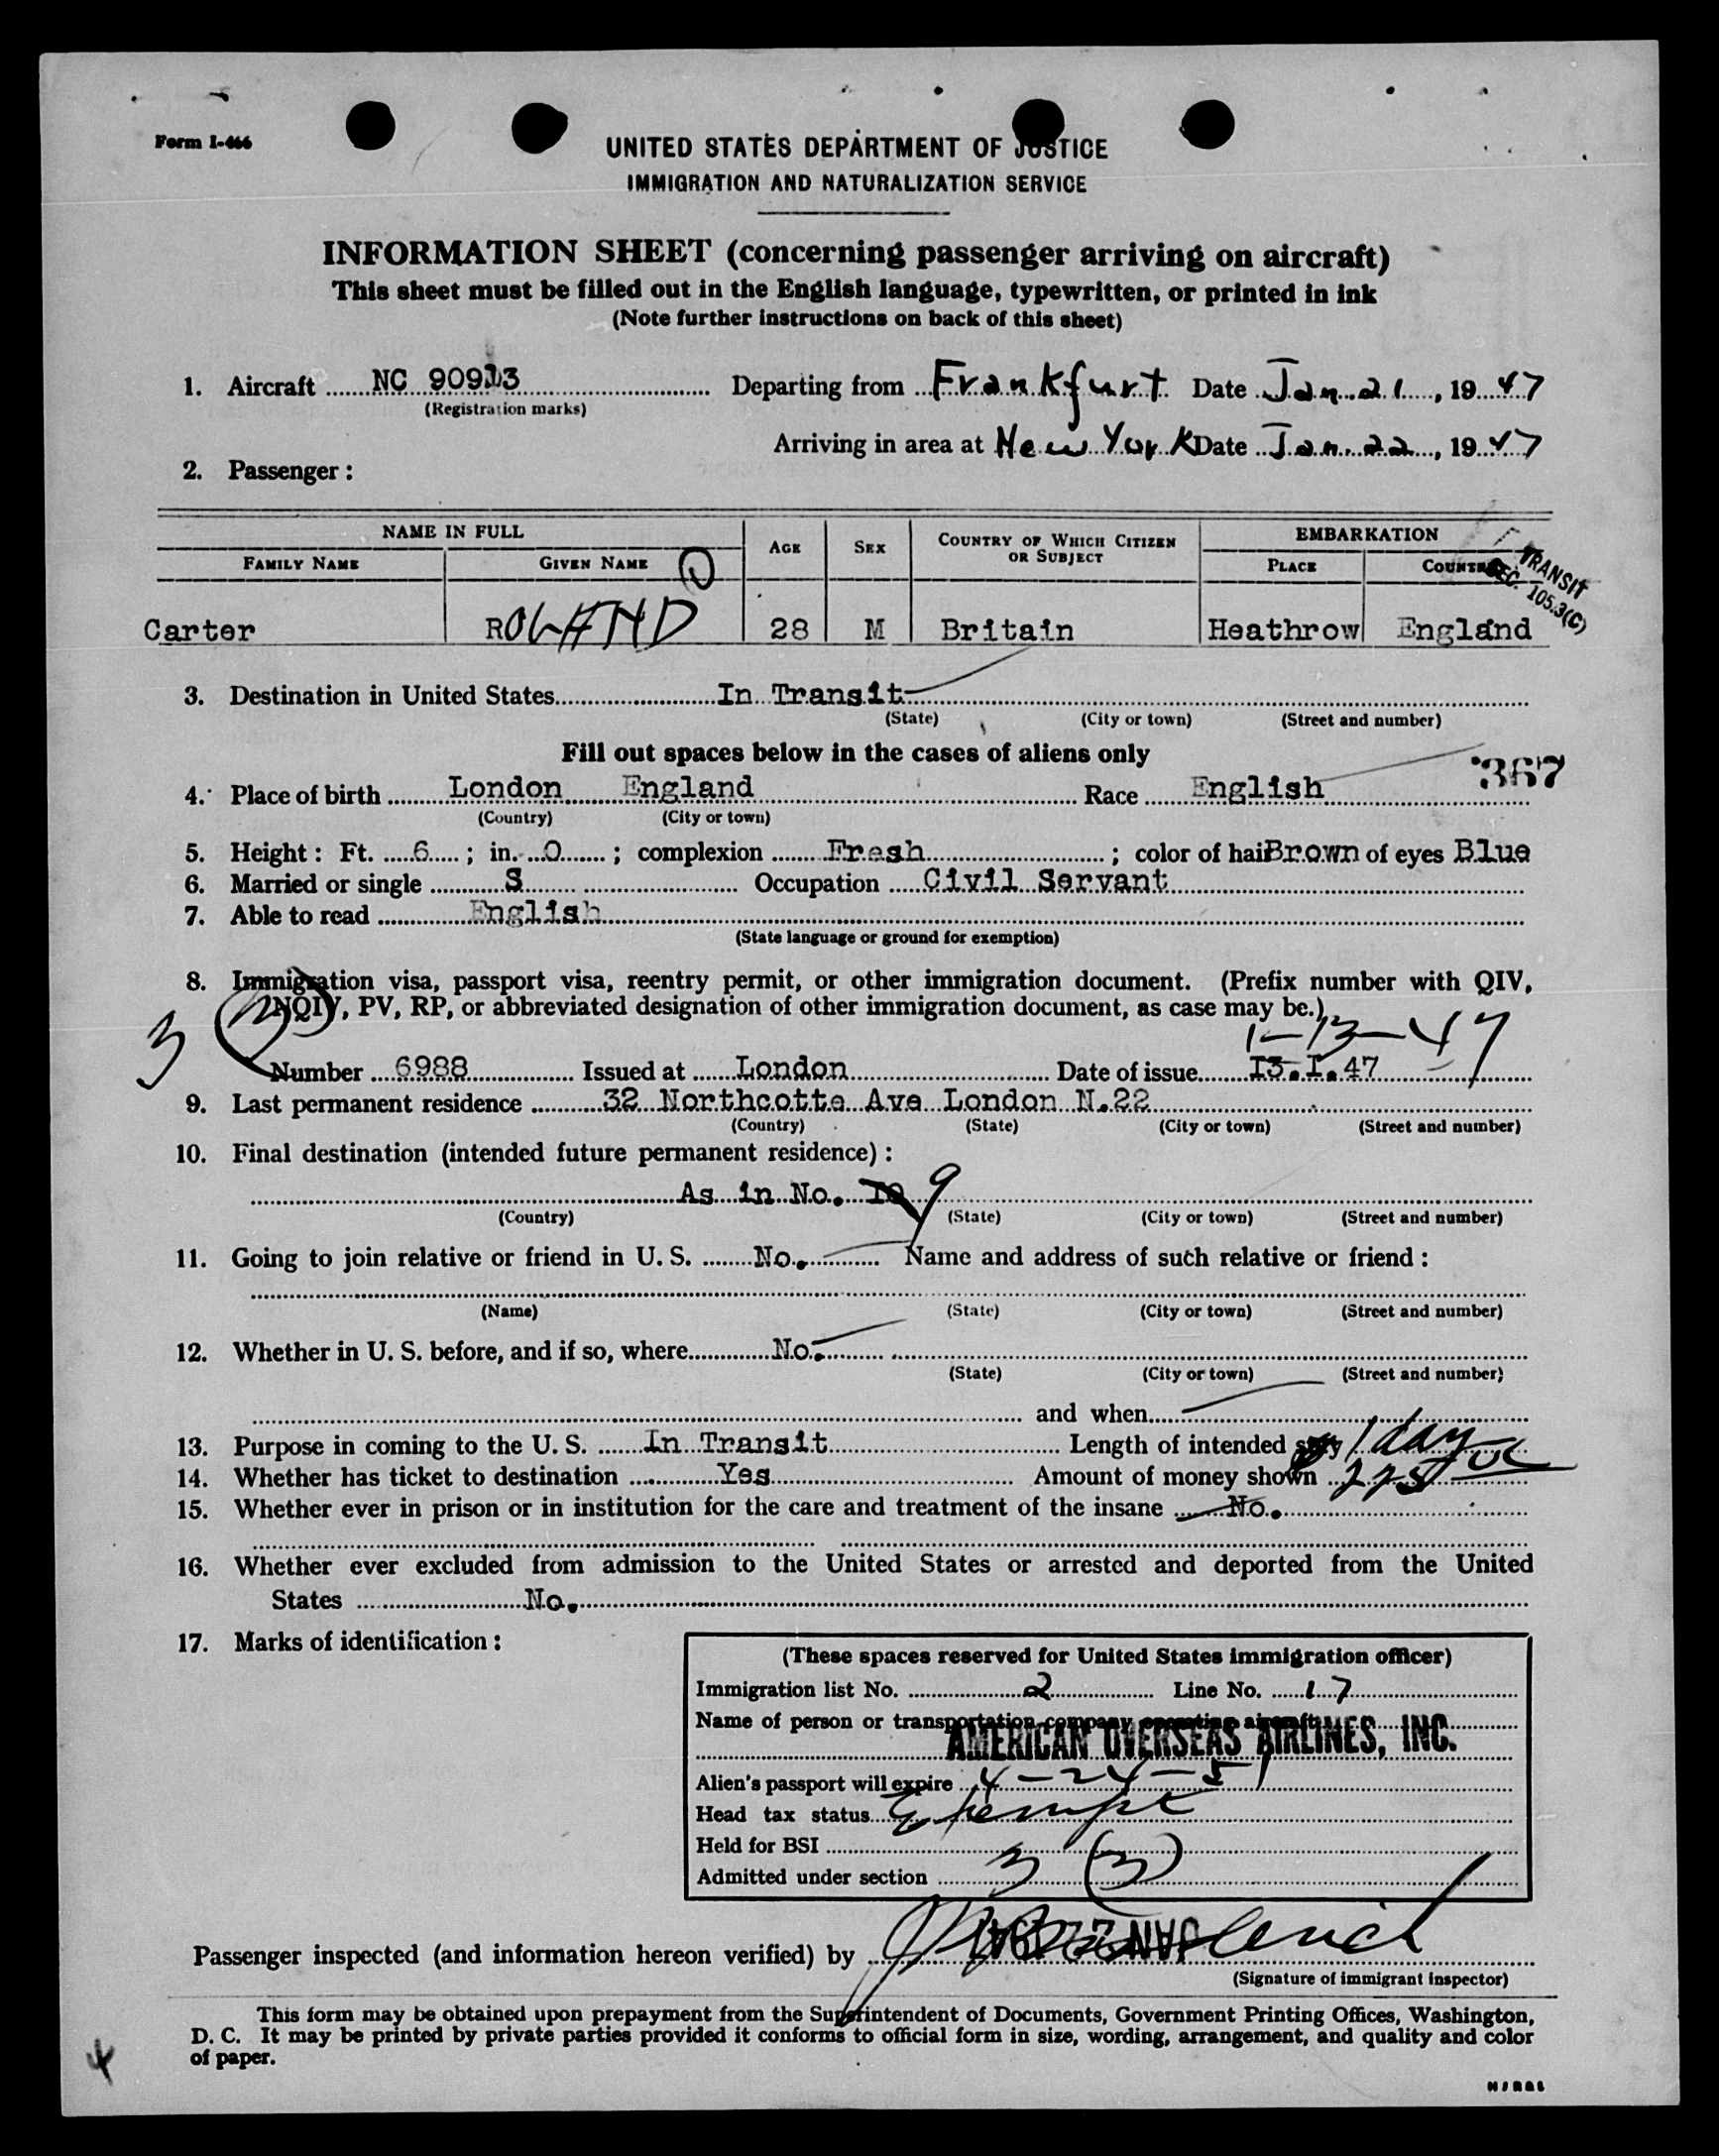 Form I-466
UNITED STATES DEPARTMENT OF JUSTICE
IMMIGRATION AND NATURALIZATION SERVICE
INFORMATION SHEET (concerning passenger arriving on aircraft)
This sheet must be filled out in the English language, typewritten, or printed in ink
(Note further instructions on back of this sheet)
1. Aircraft NC 90913 Departing from Frankfurt Date Jan. 21, 1947
(Registration marks)
Arriving in area at New York Date Jan. 22, 1947
2. Passenger:
NAME IN FULL AGE SEX COUNTRY OF WHICH CITIZEN OR SUBJECT EMBARKATION
FAMILY NAME GIVEN NAME PLACE COUNTRY
TRANSIT
SEC. 105.3(C)
Carter ROLAND 28 M Britain Heathrow England
3. Destination in United States In Transit
(State) (City or town) (Street and number)
Fill out spaces below in the cases of aliens only
367
4. Place of birth London England Race English
(Country) (City or town)
5. Height: Ft. 6; in. 0; complexion Fresh; color of hair Brown of eyes Blue
6. Married or single S Occupation Civil Servant
7. Able to read English
(State language or ground for exemption)
8. Immigration visa, passport visa, reentry permit, or other immigration document. (Prefix number with QIV,
NQIV, PV, RP, or abbreviated designation of other immigration document, as case may be.)
3 (2) 1-13-47
Number 6988 Issued at London Date of issue I3.I.47
9. Last permanent residence 32 Northcotte Ave London N.22
(Country) (State) (City or town) (Street and number)
10. Final destination (intended future permanent residence):
As in No. 10 9
(Country) (State) (City or town) (Street and number)
11. Going to join relative or friend in U. S. No. Name and address of such relative or friend:
(Name) (State) (City or town) (Street and number)
12. Whether in U. S. before, and if so, where No.
(State) (City or town) (Street and number)
and when
13. Purpose in coming to the U. S. In Transit Length of intended stay 1 day
14. Whether has ticket to destination Yes Amount of money shown
15. Whether ever in prison or in institution for the care and treatment of the insane No.
16. Whether ever excluded from admission to the United States or arrested and deported from the United
States No.
17. Marks of identification:
(These spaces reserved for United States immigration officer)
Immigration list No. 2 Line No. 17
Name of person or transportation company operating aircraft
AMERICAN OVERSEAS AIRLINES, INC.
Alien's passport will expire 4-24-51
Head tax status Exempt
Held for BSI
Admitted under section 3 (3)
Passenger inspected (and information hereon verified) by JAN 22 1947
(Signature of immigrant inspector)
This form may be obtained upon prepayment from the Superintendent of Documents, Government Printing Offices, Washington,
D. C. It may be printed by private parties provided it conforms to official form in size, wording, arrangement, and quality and color
of paper.
4